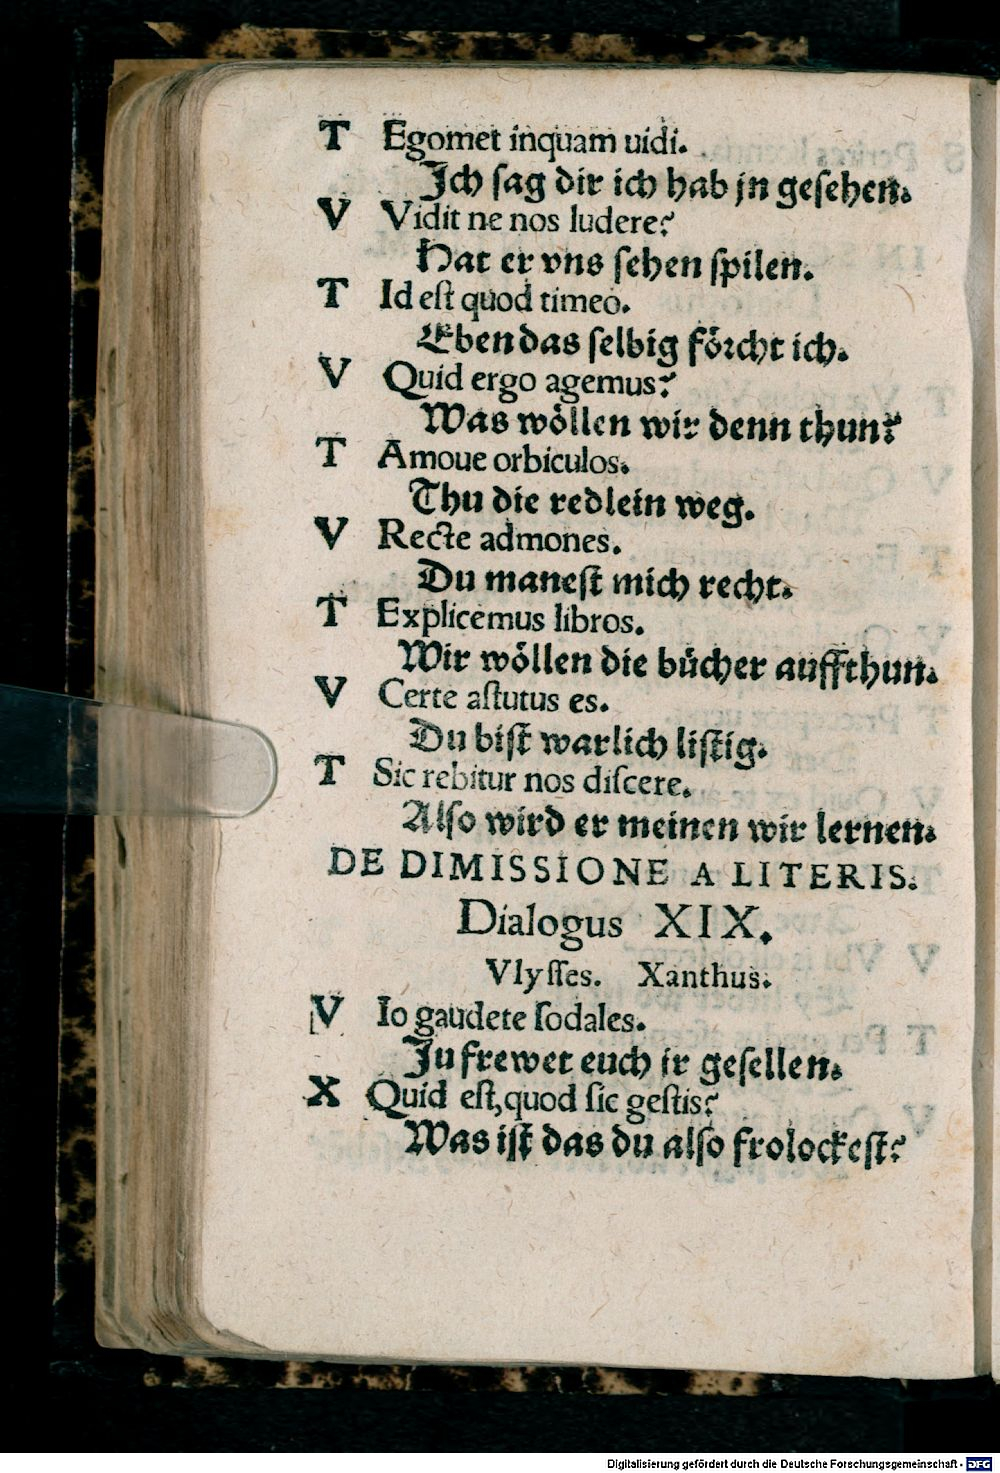 T Egomet inquam uidi.
Ich ſag dir ich hab jn geſehen.
V Vidit ne nos ludere?
Hat er vns ſehen ſpilen.
T Id eſt quod timeo.
Eben das ſelbig föꝛcht ich.
V Quid ergo agemus?
Was wöllen wir denn thun?
T Amoue orbiculos.
Thu die redlein weg.
V Recte admones.
Du maneſt mich recht.
T Explicemus libros.
Wir wöllen die bücher auffthun.
V Certe aſtutus es.
Du biſt warlich liſtig.
T Sic rebitur nos diſcere.
Alſo wird er meinen wir lernen.
DE DIMISSIONE A LITERIS.
Dialogus XIX.
Vlyſſes. Xanthus.
V Io gaudete ſodales.
Ju frewet euch ir geſellen.
X Quid eſt, quod ſic geſtis?
Was iſt das du alſo frolockeſt?
Digitalisierung gefördert durch die Deutsche Forschungsgemeinschaft - DFG